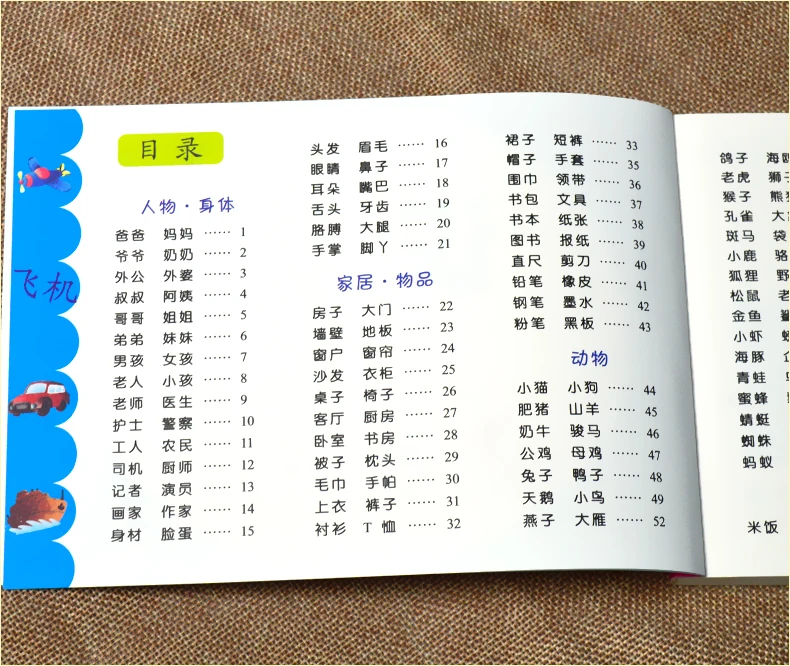 目录
飞机
人物·身体
爸爸 妈妈 …… 1
爷爷 奶奶 …… 2
外公 外婆 …… 3
叔叔 阿姨 …… 4
哥哥 姐姐 …… 5
弟弟 妹妹 …… 6
男孩 女孩 …… 7
老人 小孩 …… 8
老师 医生 …… 9
护士 警察 …… 10
工人 农民 …… 11
司机 厨师 …… 12
记者 演员 …… 13
画家 作家 …… 14
身材 脸蛋 …… 15
头发 眉毛 …… 16
眼睛 鼻子 …… 17
耳朵 嘴巴 …… 18
舌头 牙齿 …… 19
胳膊 大腿 …… 20
手掌 脚丫 …… 21
家居·物品
房子 大门 …… 22
墙壁 地板 …… 23
窗户 窗帘 …… 24
沙发 衣柜 …… 25
桌子 椅子 …… 26
客厅 厨房 …… 27
卧室 书房 …… 28
被子 枕头 …… 29
毛巾 手帕 …… 30
上衣 裤子 …… 31
衬衫 T恤 …… 32
裙子 短裤 …… 33
帽子 手套 …… 35
围巾 领带 …… 36
书包 文具 …… 37
书本 纸张 …… 38
图书 报纸 …… 39
直尺 剪刀 …… 40
铅笔 橡皮 …… 41
钢笔 墨水 …… 42
粉笔 黑板 …… 43
动物
小猫 小狗 …… 44
肥猪 山羊 …… 45
奶牛 骏马 …… 46
公鸡 母鸡 …… 47
兔子 鸭子 …… 48
天鹅 小鸟 …… 49
燕子 大雁 …… 52
鸽子 海鸥
老虎 狮子
猴子 熊
孔雀 大
斑马 袋
小鹿 骆
狐狸 野
松鼠 老
金鱼
小虾
海豚
青蛙
蜜蜂
蜻蜓
蜘蛛
蚂蚁
米饭